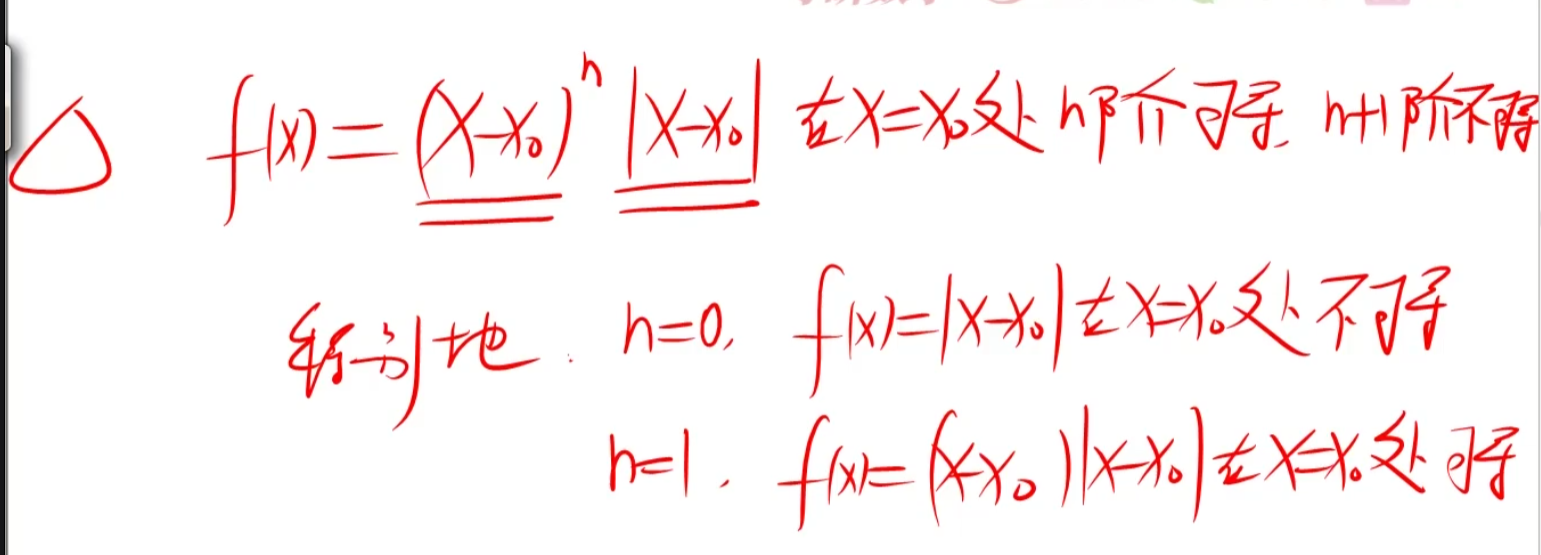 △ f(x)=(x-x₀)ⁿ|x-x₀| 在x=x₀处n阶可导. n+1阶不可导
特别地. n=0, f(x)=|x-x₀|在x=x₀处不可导
n=1. f(x)=(x-x₀)|x-x₀|在x=x₀处可导